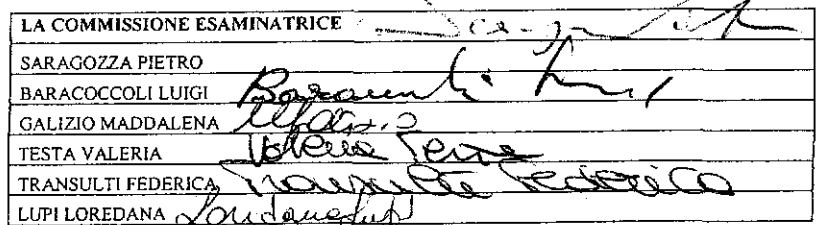 LA COMMISSIONE ESAMINATRICE
SARAGOZZA PIETRO
BARACOCCOLI LUIGI
GALIZIO MADDALENA
TESTA VALERIA Valeria Testa
TRANSULTI FEDERICA Transulti Federica
LUPI LOREDANA Loredana Lupi